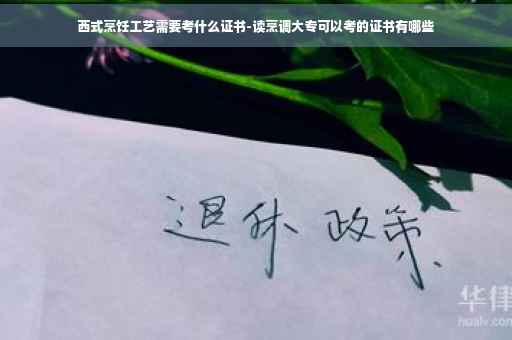 西式烹饪工艺需要考什么证书-读烹调大专可以考的证书有哪些
退休 政策
华律
hualv.com